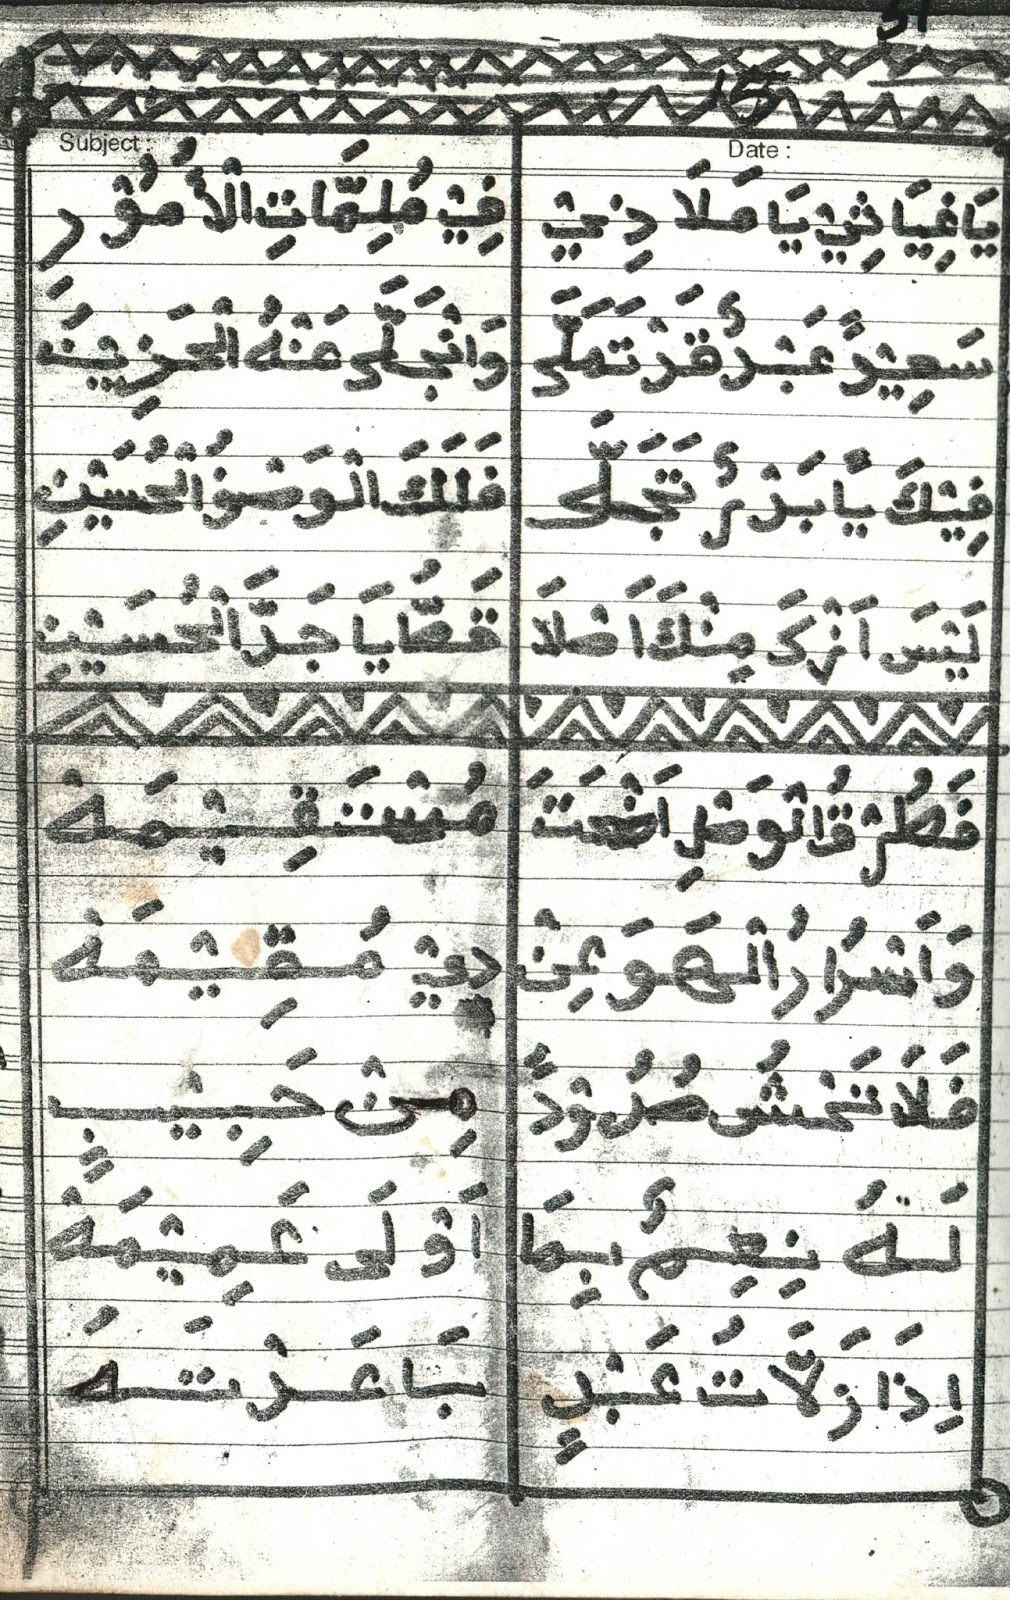 31
15
Subject :
Date :
يَاغِيَاثِيْ يَا مَلَا دِيْ فِيْ مُلِمَّاتِ الْأُمُوْر
سَعِيْرً عَبْدٌ قَرْ تَمَلَّى وَانْجَلَّى عَنْهُ الْحَزِيْنَ
فِيْكَ يَا بَرْرٌ تَجَلَّى فَلَكَ الْوَصْوُ الْحُسَيْنِ
لَيْسَ اَزْكَ مِنْكَ اَصْلَا قَطُّ يَا جَرَّ الْحُسَيْنِ
فَطُرْ قُانْوَصْلِ اَضْحَتَ مُسْتَقِيْمَهْ
وَاَسْرَارُ الْهَوَ عِنْ دِيْ مُقِيْمَهْ
فَلَا تَخْشُ صُدُوْدً مِنْ حَبِيْبٍ
لَهُ نِعِمٌ بِمَا اَوْلَى عَمِيْمَهْ
اِذَا زَلَّاتُ عَبْدٍ بَاعَدْتَهَ